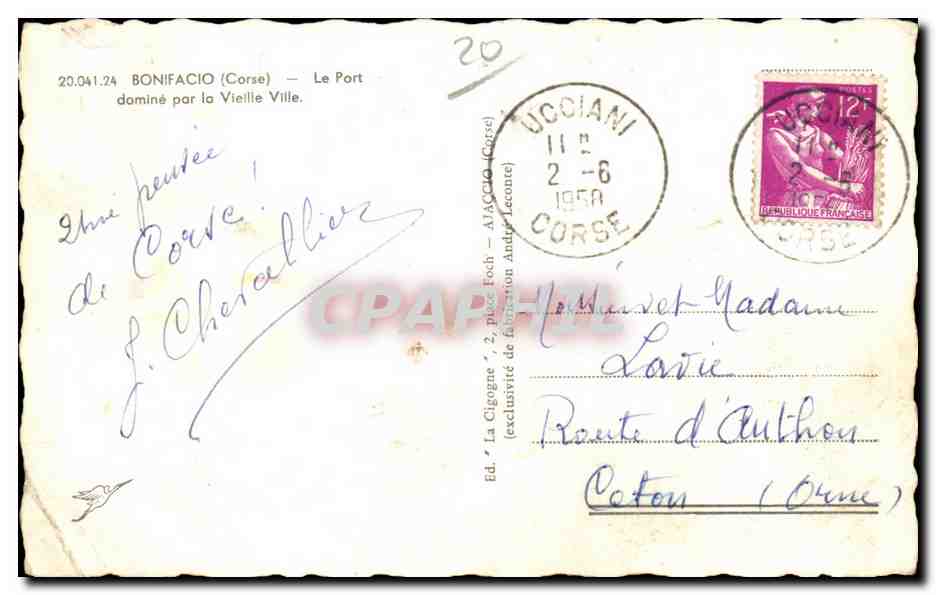 20.041.24 BONIFACIO (Corse) — Le Port
dominé par la Vieille Ville.
20
Une pensée
de Corse,
J. Chevallier
Ed. "La Cigogne", 2, place Foch - AJACCIO (Corse)
(exclusivité de fabrication André Leconte)
UCCIANI
11 H
2 -6
1958
CORSE
POSTES
12F
REPUBLIQUE FRANÇAISE
UCCIANI
2 -6
CORSE
CPAPHIL
Monsieur et Madame
Lavie
Route d'Authon
Ceton (Orne)